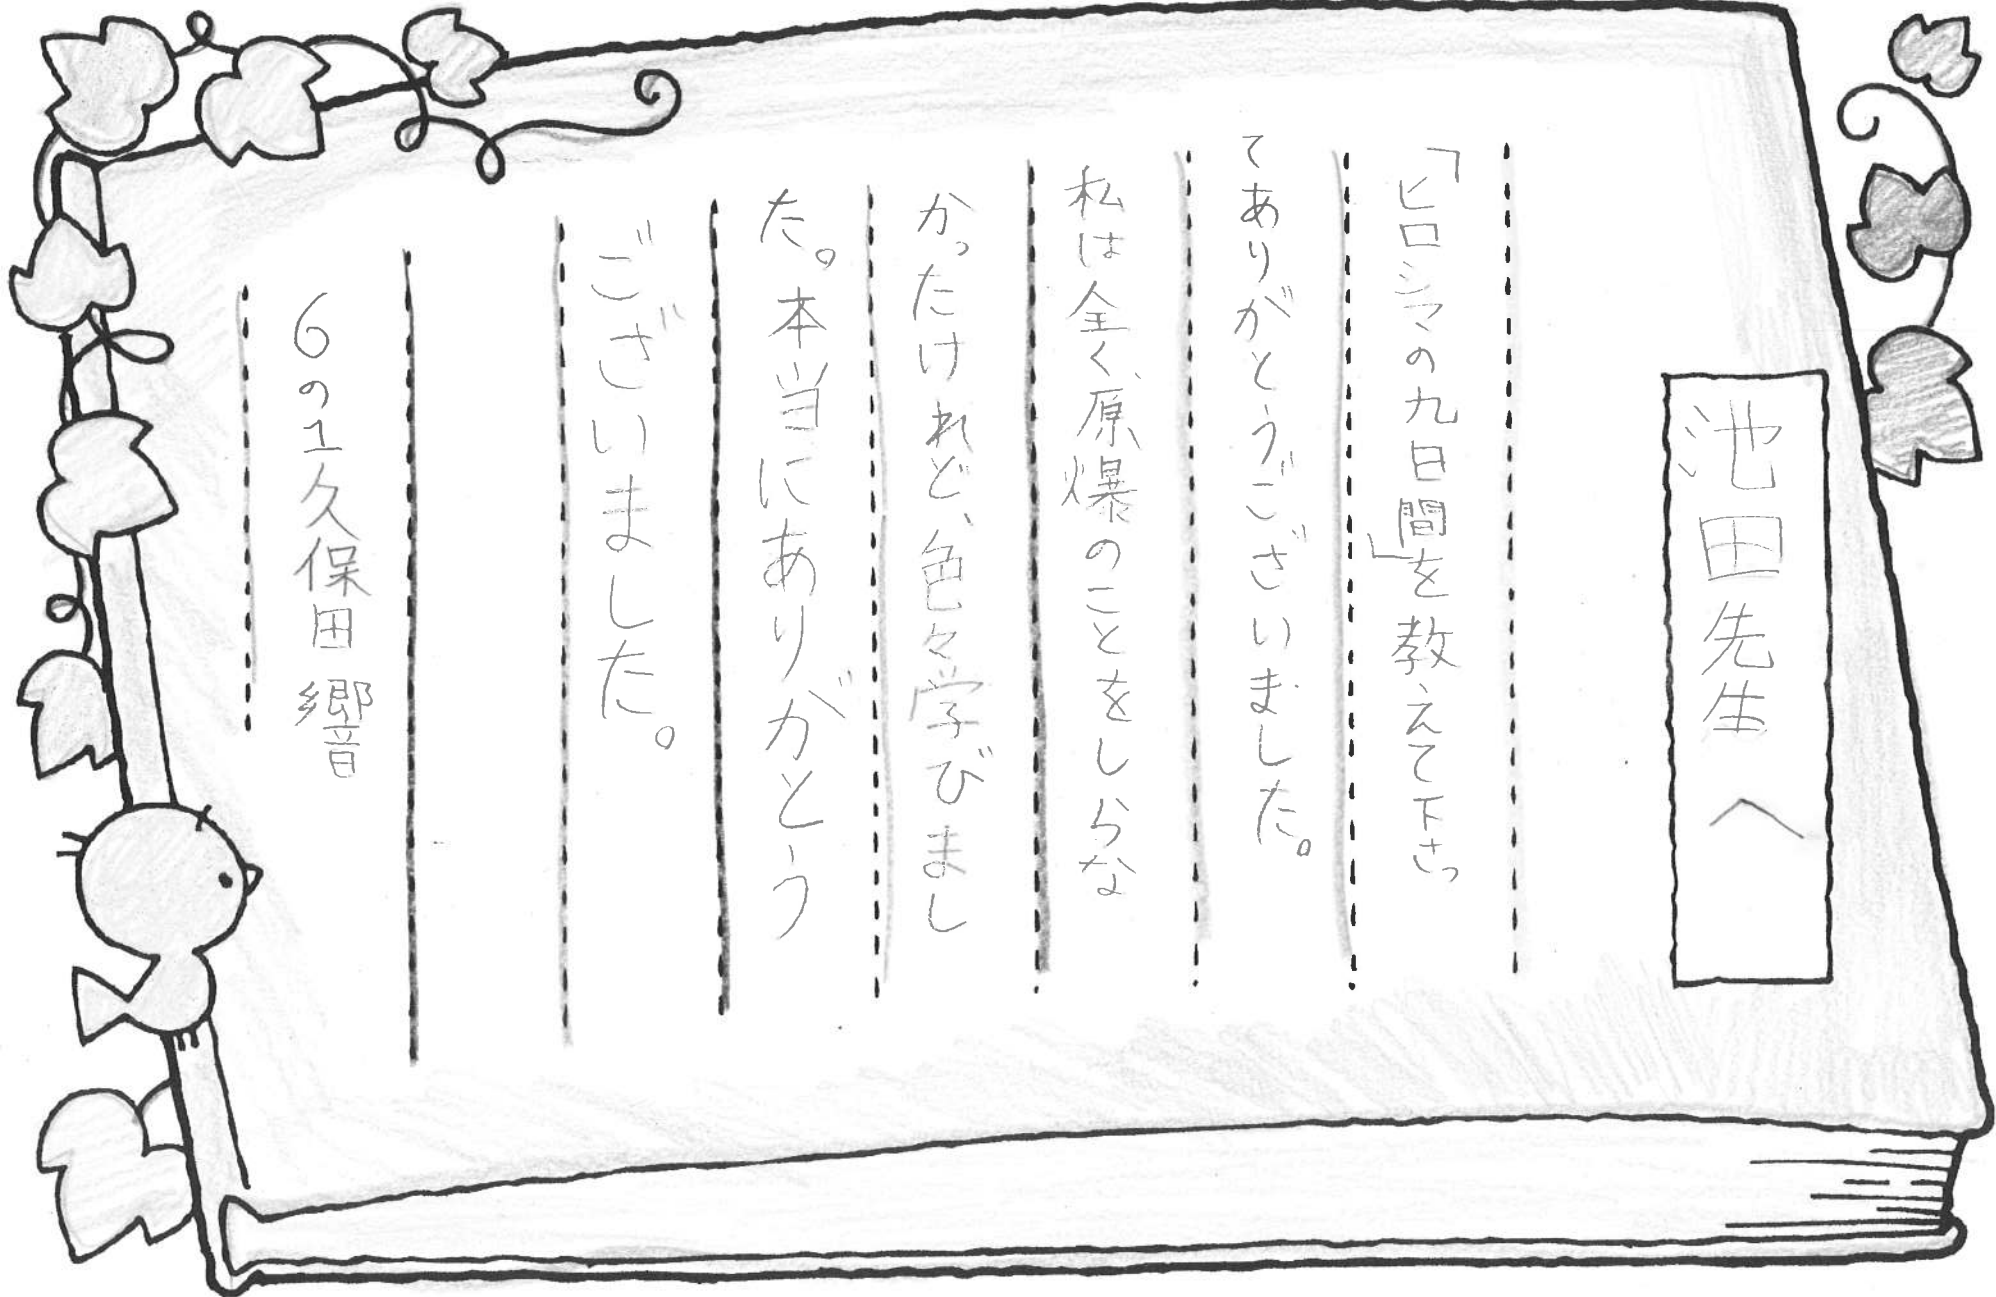 池田先生へ
「ヒロシマの九日間」を教えて下さっ
てありがとうございました。
私は全く、原爆のことをしらな
かったけれど、色々学びまし
た。本当にありがとう
ございました。
6の1久保田 響